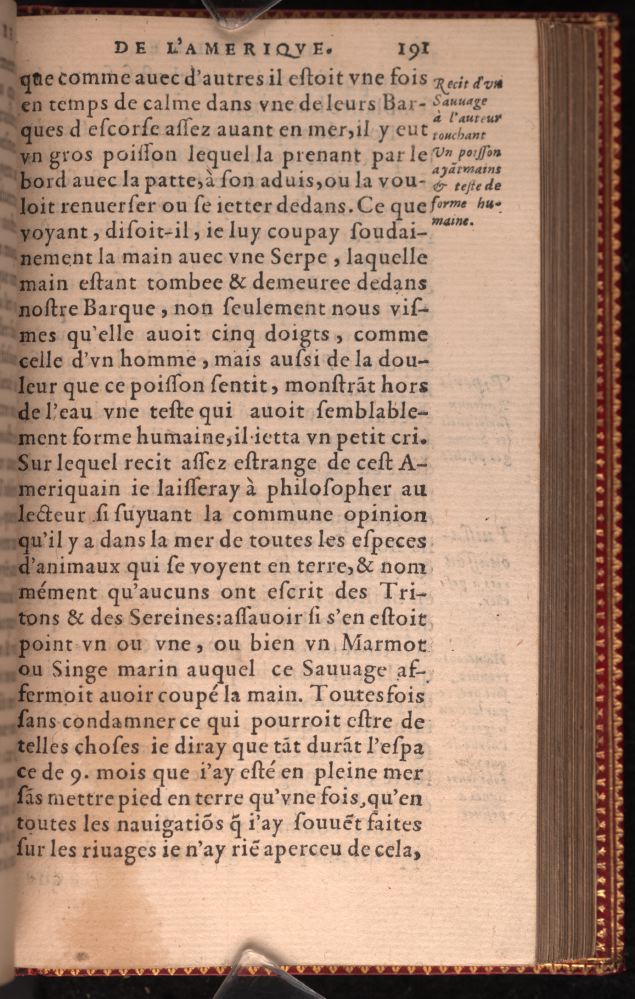 DE L'AMERIQVE. 191
que comme auec d'autres il eſtoit vne fois
en temps de calme dans vne de leurs Bar-
ques d eſcorſe aſſez auant en mer, il y eut
vn gros poiſſon lequel la prenant par le
bord auec la patte, à ſon aduis, ou la vou-
loit renuerſer ou ſe ietter dedans. Ce que
voyant, diſoit-il, ie luy coupay ſoudai-
nement la main auec vne Serpe, laquelle
main eſtant tombee & demeuree dedans
noſtre Barque, non ſeulement nous viſ-
mes qu'elle auoit cinq doigts, comme
celle d'vn homme, mais auſsi de la dou-
leur que ce poiſſon ſentit, monſtrãt hors
de l'eau vne teſte qui auoit ſemblable-
ment forme humaine, il ietta vn petit cri.
Sur lequel recit aſſez eſtrange de ceſt A-
meriquain ie laiſſeray à philoſopher au
lecteur ſi ſuyuant la commune opinion
qu'il y a dans la mer de toutes les eſpeces
d'animaux qui ſe voyent en terre, & nom
mément qu'aucuns ont eſcrit des Tri-
tons & des Sereines: aſſauoir ſi s'en eſtoit
point vn ou vne, ou bien vn Marmot
ou Singe marin auquel ce Sauuage af-
fermoit auoir coupé la main. Toutesfois
ſans condamner ce qui pourroit eſtre de
telles choſes ie diray que tãt durãt l'eſpa
ce de 9. mois que i'ay eſté en pleine mer
ſãs mettre pied en terre qu'vne fois, qu'en
toutes les nauigatiõs q̃ i'ay ſouuẽt faites
ſur les riuages ie n'ay riẽ aperceu de cela,
Recit d'vn
Sauuage
à l'auteur
touchant
Vn poiſſon
ayãt mains
& teſte de
forme hu-
maine.